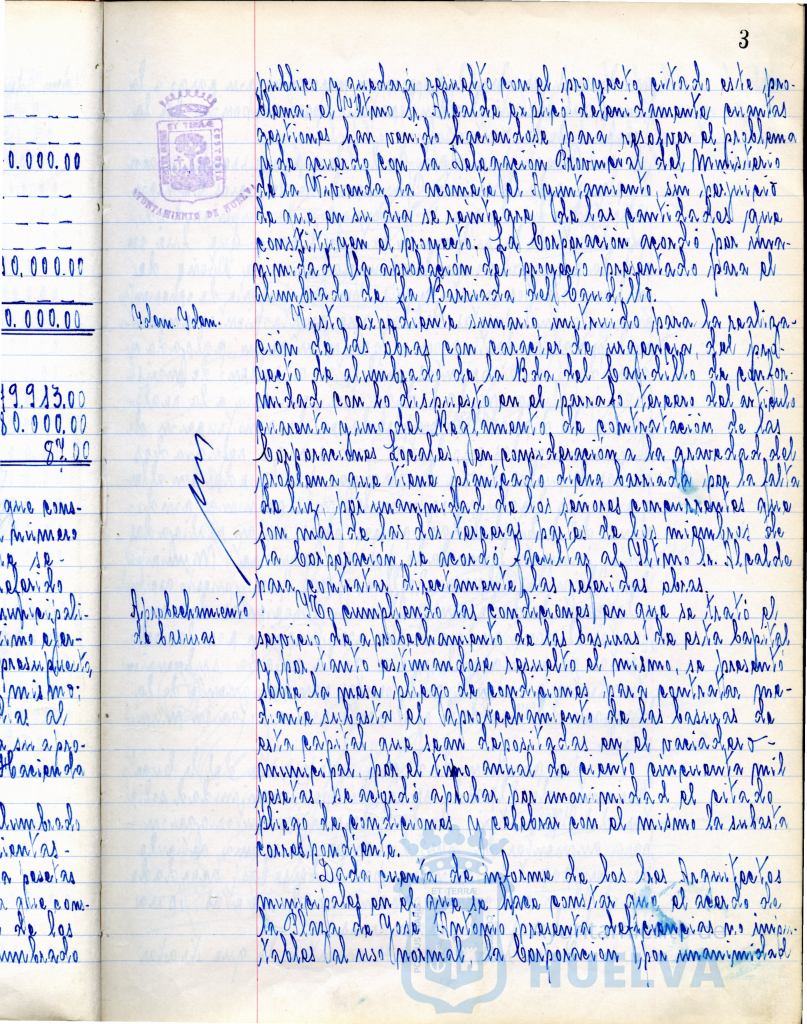 3
_ _ _ _
_ _ _ _
0.000.00
_ _ _ _
_ _ _ _
_ _ _ _
10.000.00
_ _ _ _
0.000.00
19.913.00
80.000.00
87.00
que cons-
número
se-
referido
municipali-
presupuesto,
mismo;
al
apro-
Hacienda
alumbrado
ientas-
a pesetas
que com-
de los
umbrado
AYUNTAMIENTO DE HUELVA
público y quedará resuelto con el proyecto citado este pro-
blema; el Yltmo Sr. Alcalde explicó detenidamente cuantas
gestiones han venido haciendose para resolver el problema
y de acuerdo con la Delegación Provincial del Ministerio
de la Vivienda la acometa el Ayuntamiento, sin perjuicio
de que en su dia se reintegre de las cantidades que
constituyen el proyecto. La Corporación acordó por una-
nimidad la aprobación del proyecto presentado para el
alumbrado de la Barriada del Caudillo.
Ydem. Ydem.
Visto expediente sumario instruido para la realiza-
ción de las obras con caracter de urgencia, del pro-
yecto de alumbrado de la Bda. del Caudillo de confor-
midad con lo dispuesto en el parrafo tercero del articulo
cuarenta y uno del Reglamento de contratación de las
Corporaciones Locales, en consideración a la gravedad del
problema que tiene planteado dicha barriada por la falta
de luz, por unanimidad de los señores concurrentes que
son mas de las dos terceras partes de los miembros de
la Corporación, se acordó facultar al Yltmo Sr. Alcalde
para contratar directamente las referidas obras.
Aprobechamiento
de basuras
No cumpliendo las condiciones en que se trató el
servicio de aprobechamiento de las basuras de esta Capital
y por tanto estimandose resuelto el mismo, se presentó
sobre la mesa pliego de condiciones para contratar me-
diante subasta el aprovechamiento de las basuras de
esta capital que sean depositadas en el vaciadero-
municipal, por el tipo anual de ciento cincuenta mil
pesetas, se acordó aprobar por unanimidad el citado
pliego de condiciones y celebrar con el mismo la subasta
correspondiente.
Dada cuenta de informe de los Sres Arquitectos
municipales en el que se hace constar que el acerado de
la Plaza de Jose Antonio presenta deficiencias no impu-
tables al uso normal la Corporación por unanimidad
HUELVA